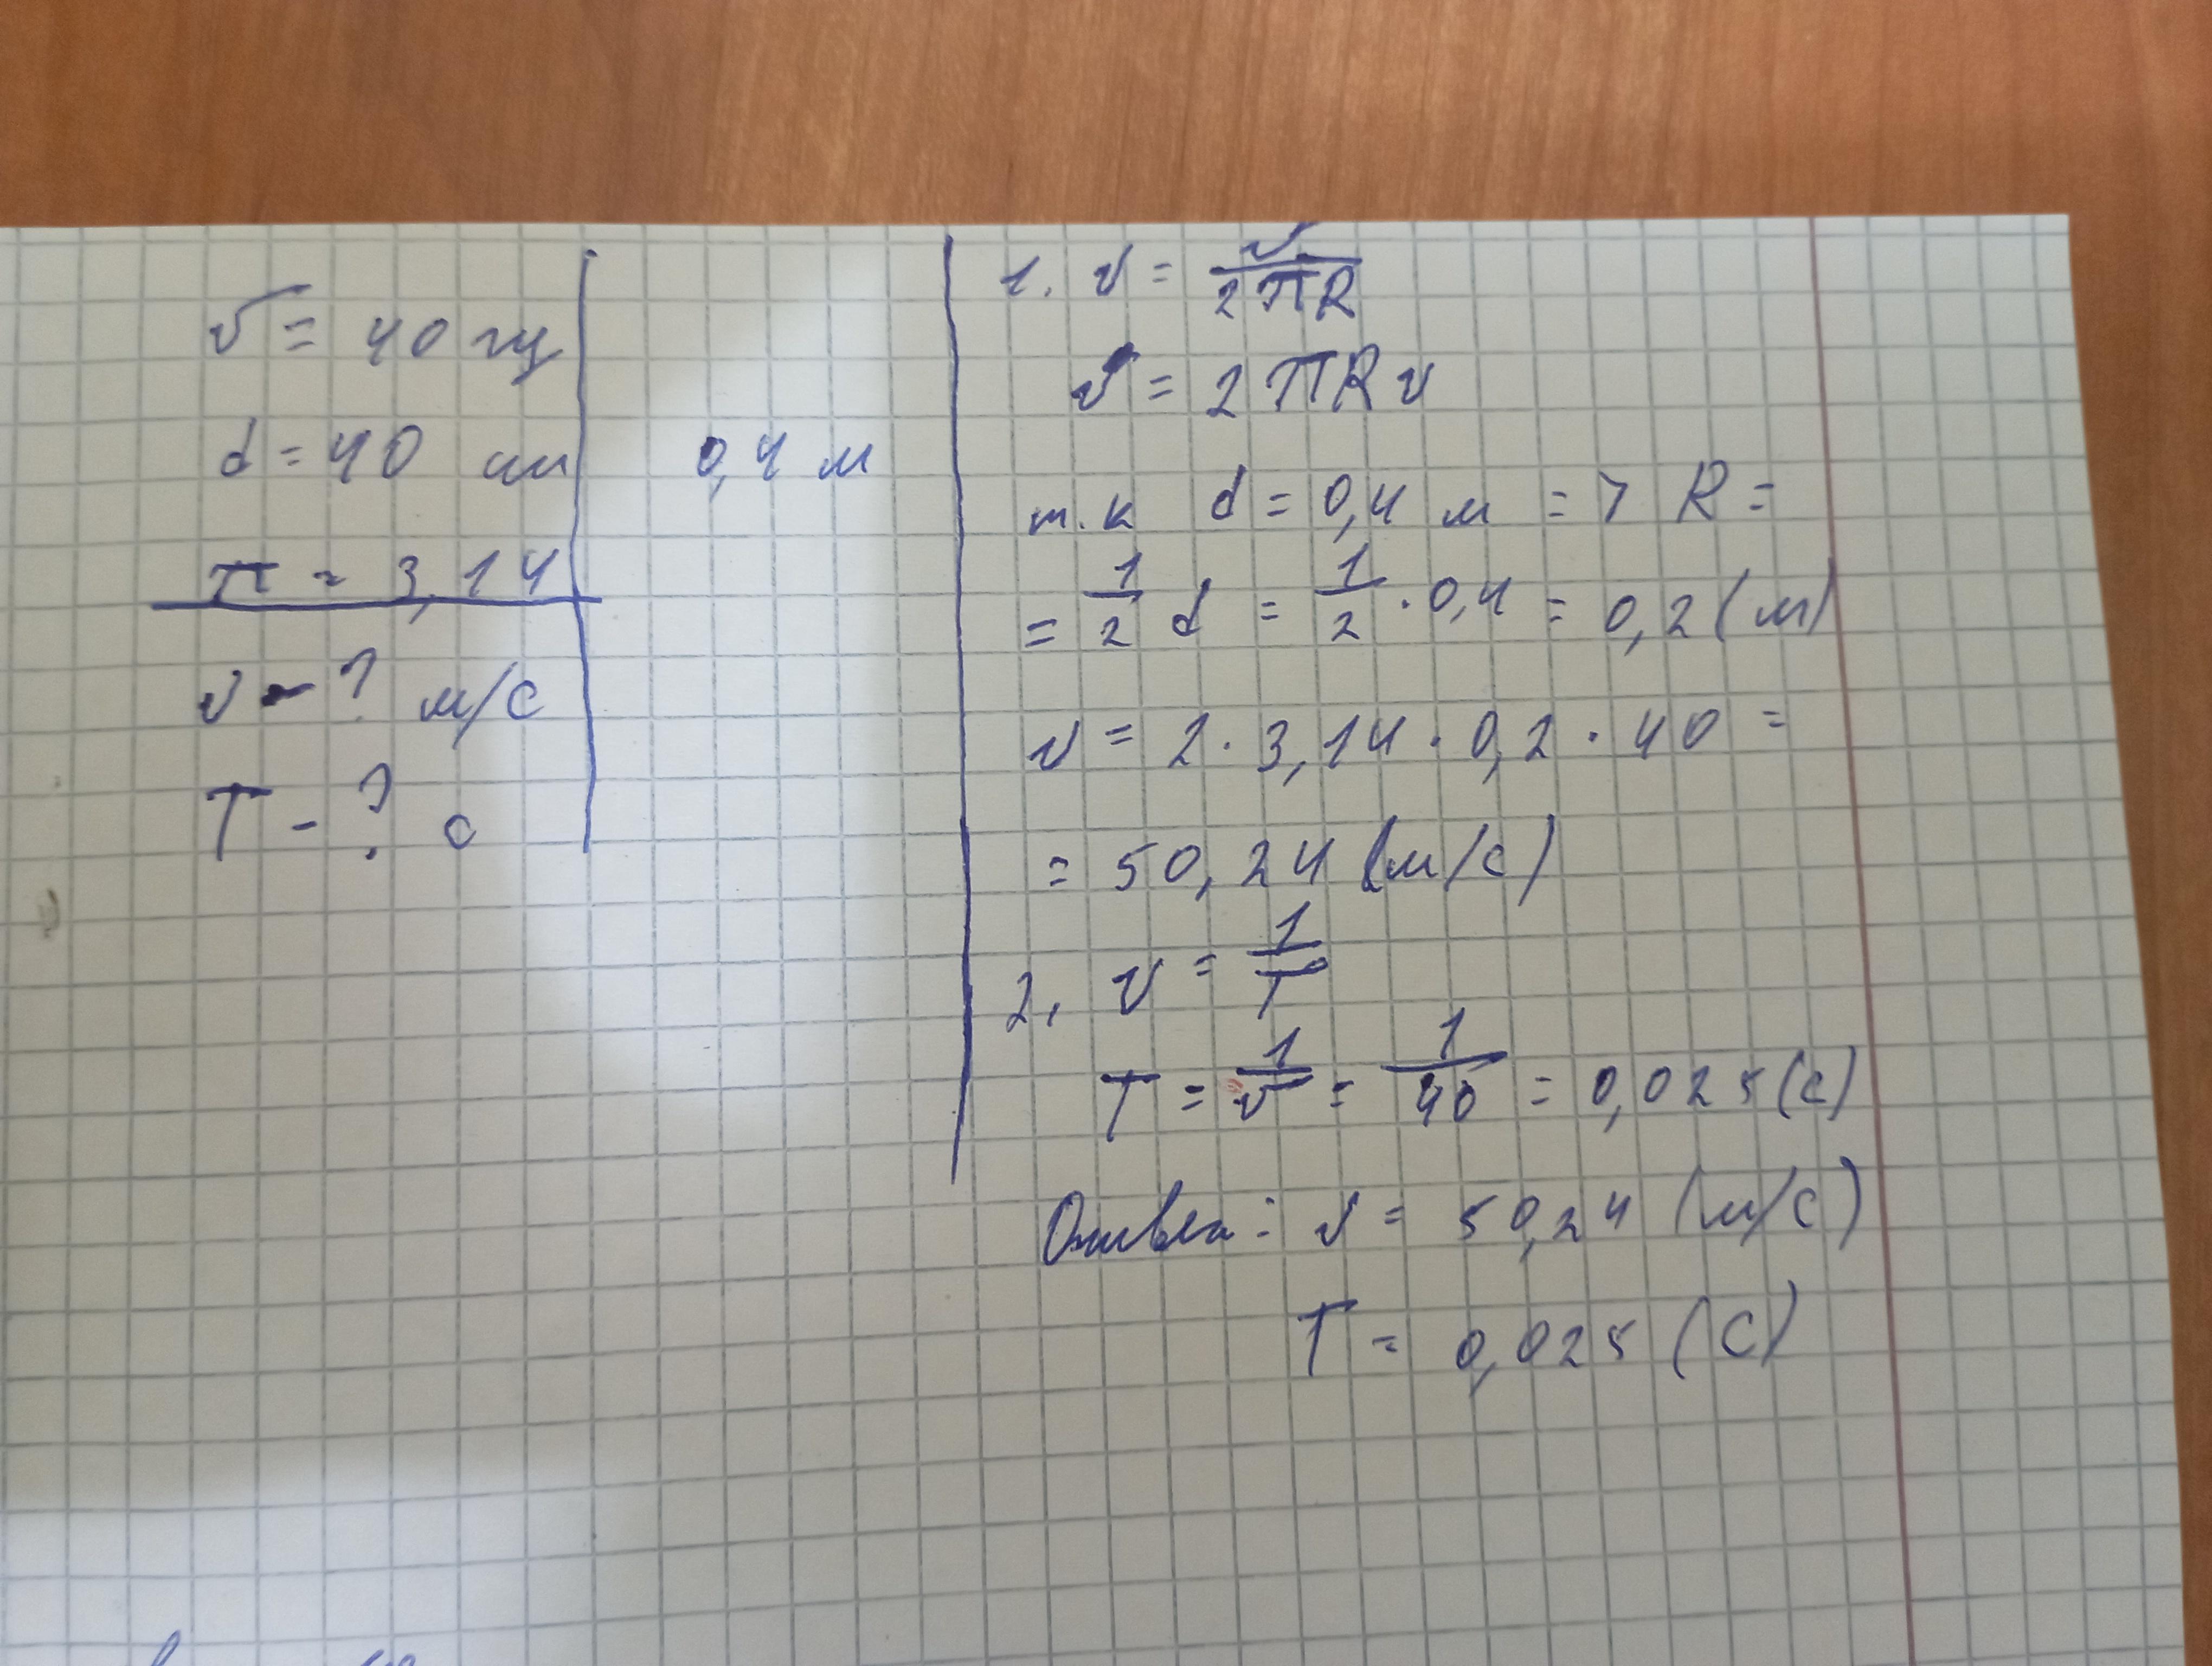 ν = 40 гц
d = 40 см
0,4 м
π ≈ 3,14
v - ? м/с
T - ? с
1. ν = v / 2πR
v = 2πRν
т.к d = 0,4 м => R =
= 1/2 d = 1/2 · 0,4 = 0,2 (м)
v = 2 · 3,14 · 0,2 · 40 =
= 50,24 (м/с)
2. ν = 1/T
T = 1/ν = 1/40 = 0,025 (с)
Ответ: v = 50,24 (м/с)
T = 0,025 (С)